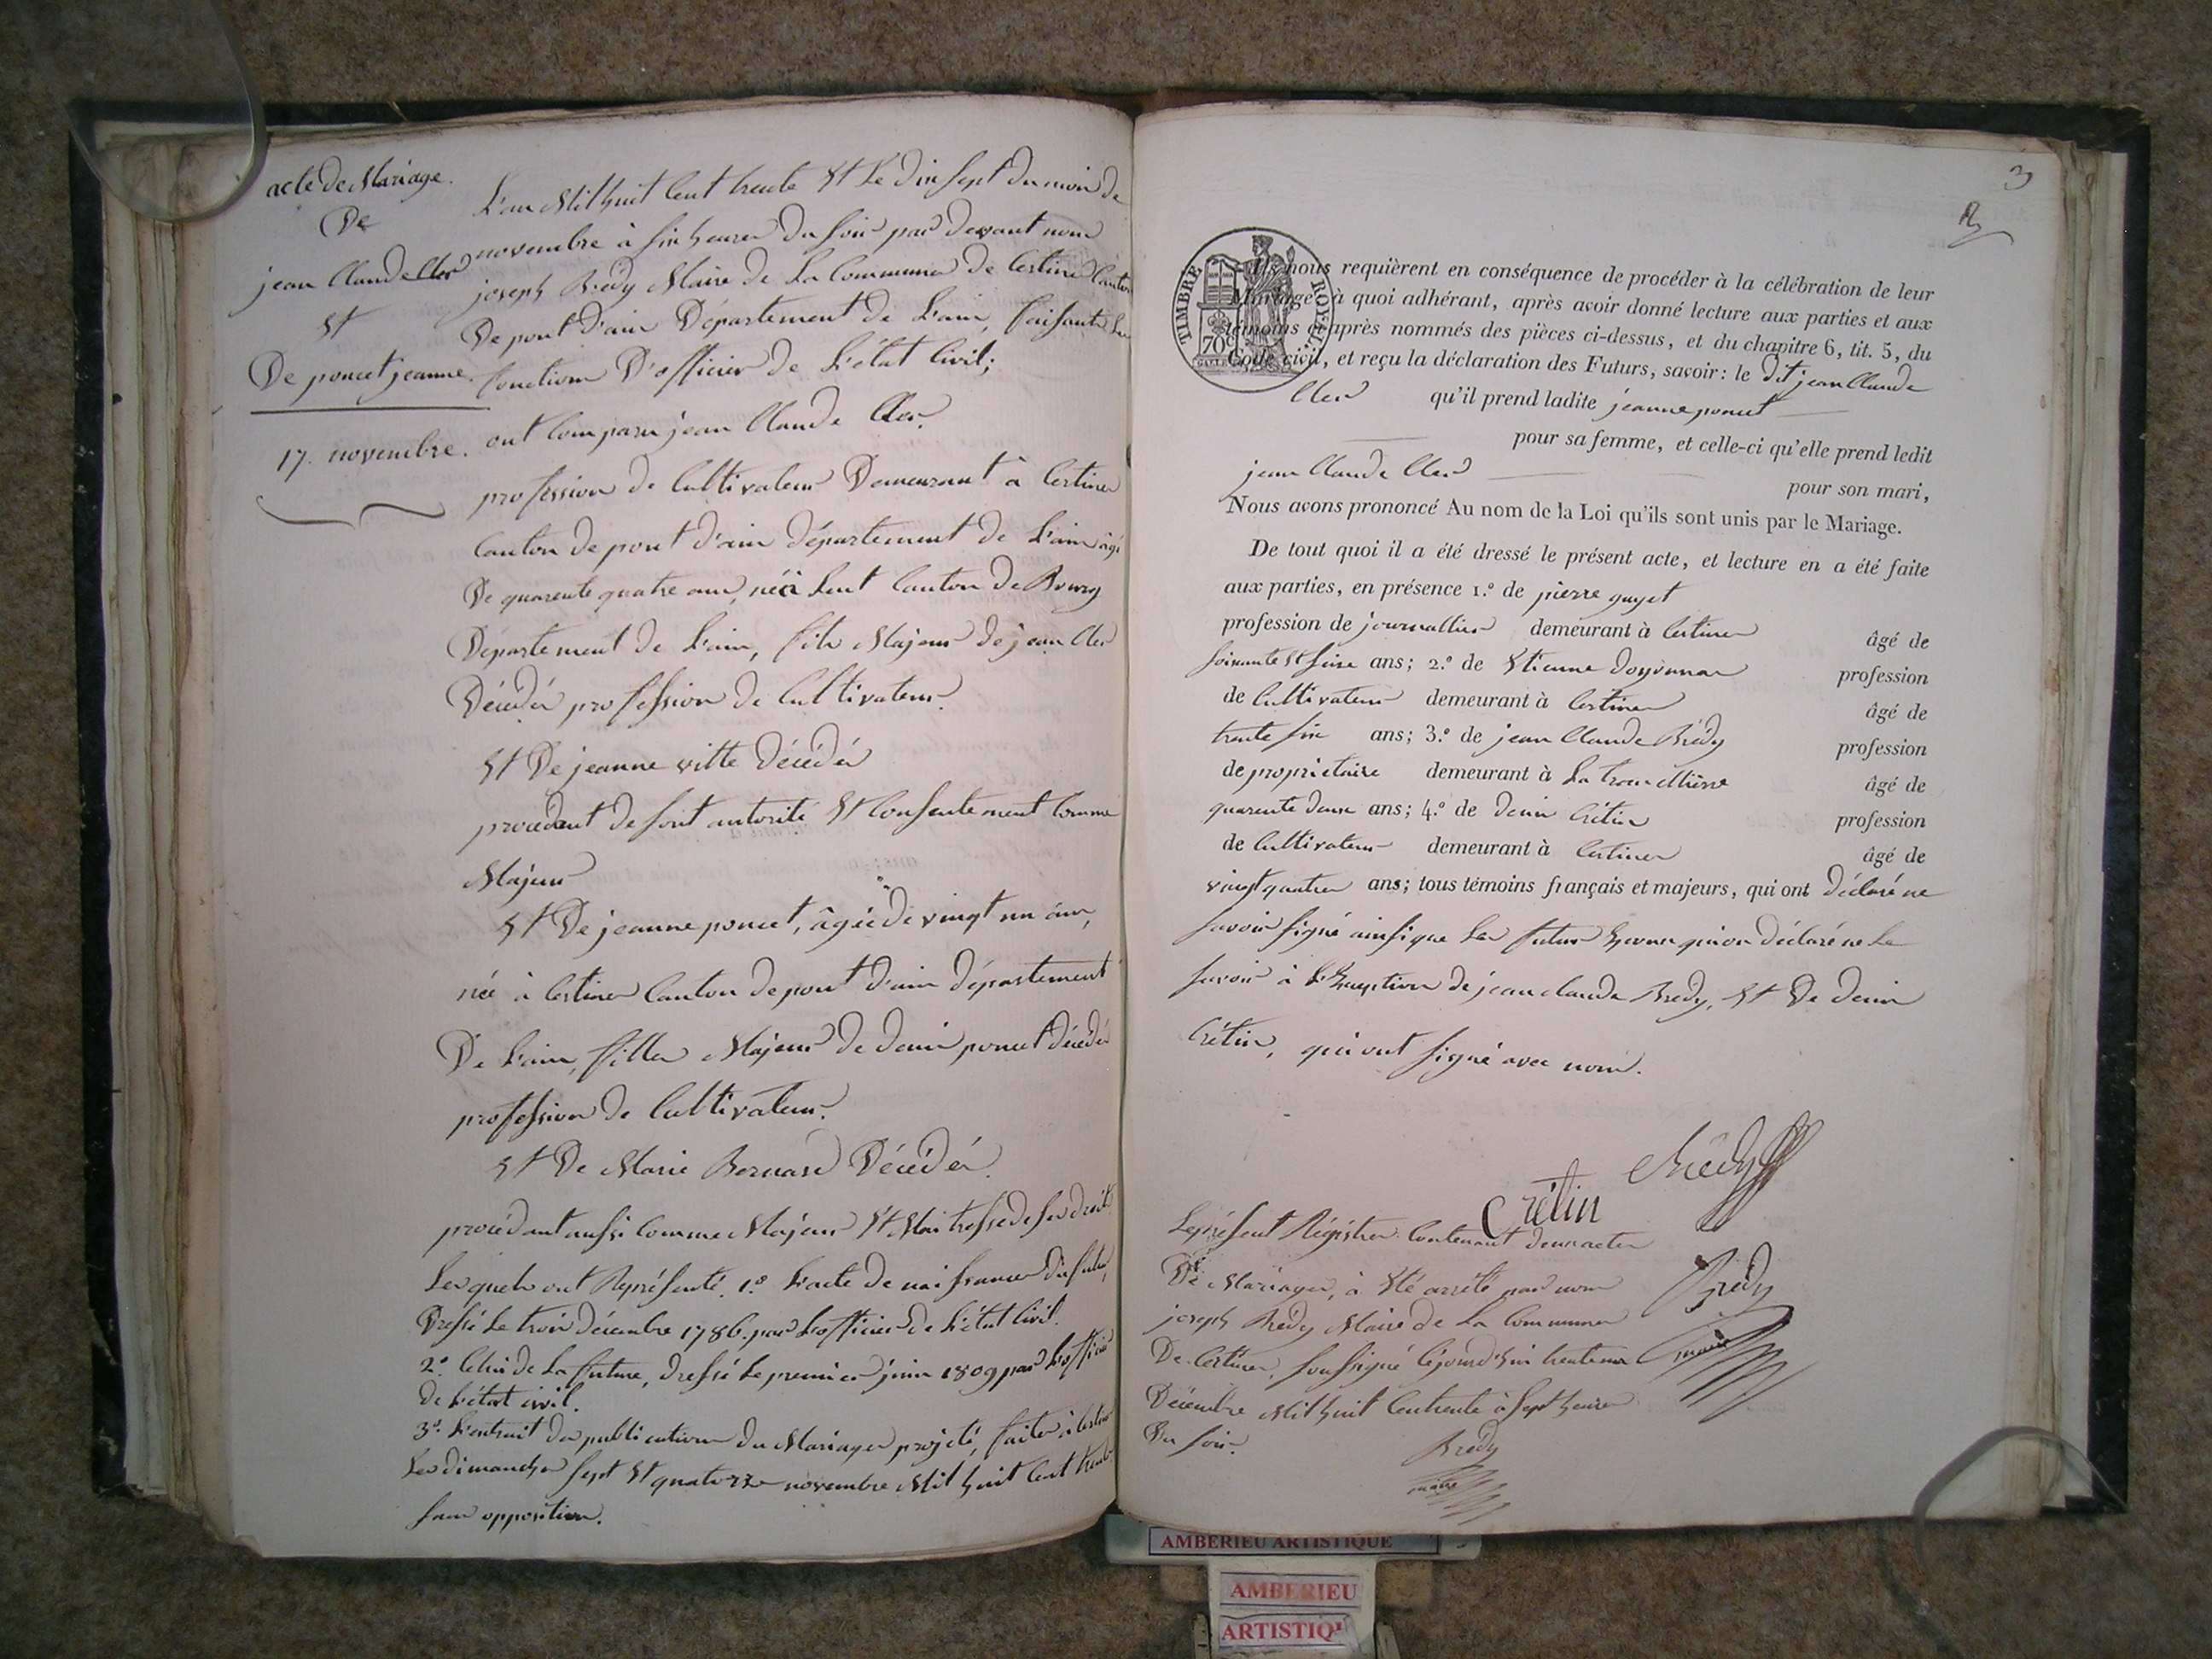 acte de Mariage.
De
jean Claude Cler
Et
De poncet jeanne.
17. novembre.
L'an Mil huit Cent trente Et Le dix sept du mois de
novembre à six heures du soir par devant nous
joseph Brédy Maire de La Commune de Certines Canton
De pont d'ain Département de L'ain, faisant Les
fonctions D'officier de L'état Civil;
ont Comparu jean Claude Cler.
profession de Cultivateur Demeurant à Certines
Canton de pont d'ain département de L'ain âgé
De quarente quatre ans, né à Lent Canton de Bourg
Département de L'ain, fils Majeur de jean Cler
Décédé profession de Cultivateur.
Et De jeanne vitte Décédée
procédent de sont autorité Et Consentement Comme
Majeur
Et De jeanne poncet, âgée de vingt un ans,
née à Certines Canton de pont d'ain département
De L'ain, filles Majeur de denis poncet décédé
profession de Cultivateur.
Et De Marie Bernard Décédée.
procédant aussi Comme Majeur Et Maitresse de ses droits
Lesquels ont Représenté. 1.° L'acte de naissance du futur,
Dressé Le trois décembre 1786. par L'officier de L'état Civil.
2.° Celui de La future, dressé Le premier juin 1809 par L'officier
de L'état civil.
3.° L'extrait des publications du Mariage projeté, faites à Certines
Les dimanches sept Et quatorze novembre Mil huit Cent trente
sans opposition.
3
TIMBRE ROYAL
70c
Ils nous requièrent en conséquence de procéder à la célébration de leur
Mariage à quoi adhérant, après avoir donné lecture aux parties et aux
témoins ci-après nommés des pièces ci-dessus, et du chapitre 6, tit. 5, du
Code civil, et reçu la déclaration des Futurs, savoir: le dit jean Claude
Cler qu'il prend ladite jeanne poncet
pour sa femme, et celle-ci qu'elle prend ledit
jean Claude Cler
pour son mari,
Nous avons prononcé Au nom de la Loi qu'ils sont unis par le Mariage.
De tout quoi il a été dressé le présent acte, et lecture en a été faite
aux parties, en présence 1.° de pierre guyet
profession de journallier demeurant à Certines âgé de
soixante Et seize ans; 2.° de Etienne doyonnax profession
de Cultivateur demeurant à Certines âgé de
trente six ans; 3.° de jean Claude Brédy profession
de propriétaire demeurant à La âgé de
quarente deux ans; 4.° de denis Crétin profession
de Cultivateur demeurant à Certines âgé de
vingt quatre ans; tous témoins français et majeurs, qui ont déclaré ne
savoir signé ainsi que Les futurs Epoux qui on déclaré ne Le
savoir à L'Exeption de jean claude Bredy, Et De denis
Crétin, qui ont signé avec nous.
Brédy
Crétin
Le présent Régistre Contenant deux actes
De Mariages, à Eté arrété par nous
joseph Brédy Maire de La Commune
De Certines, soussigné Cejourd'hui trente un
Décembre Mil huit Centrente à sept heures
Du soir.
Brédy
maire
Brédy
maire
AMBERIEU ARTISTIQUE
AMBERIEU
ARTISTIQ